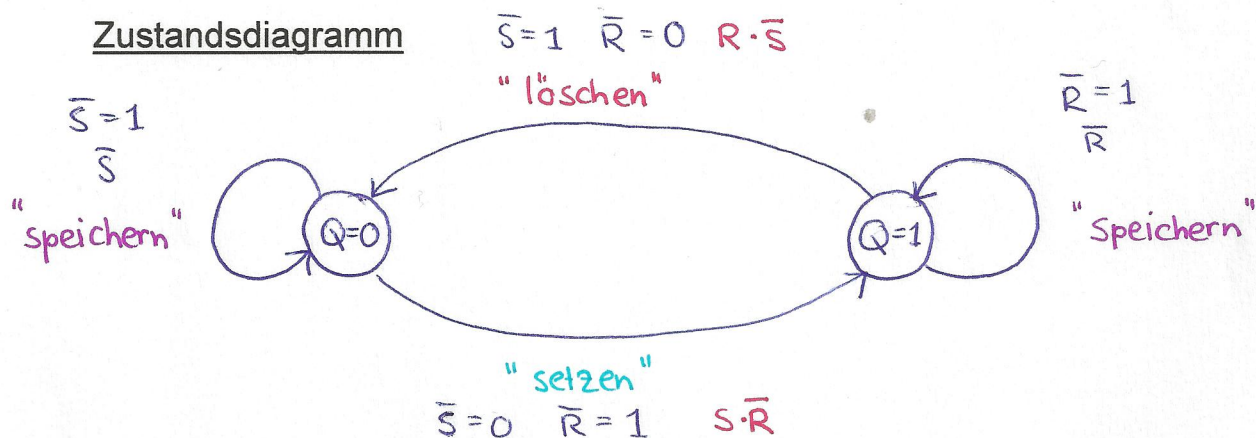 Zustandsdiagramm
S̅=1 R̅=0 R·S̅
"löschen"
S̅=1
S̅
"speichern"
R̅=1
R̅
"speichern"
Q=0
Q=1
"setzen"
S̅=0 R̅=1 S·R̅